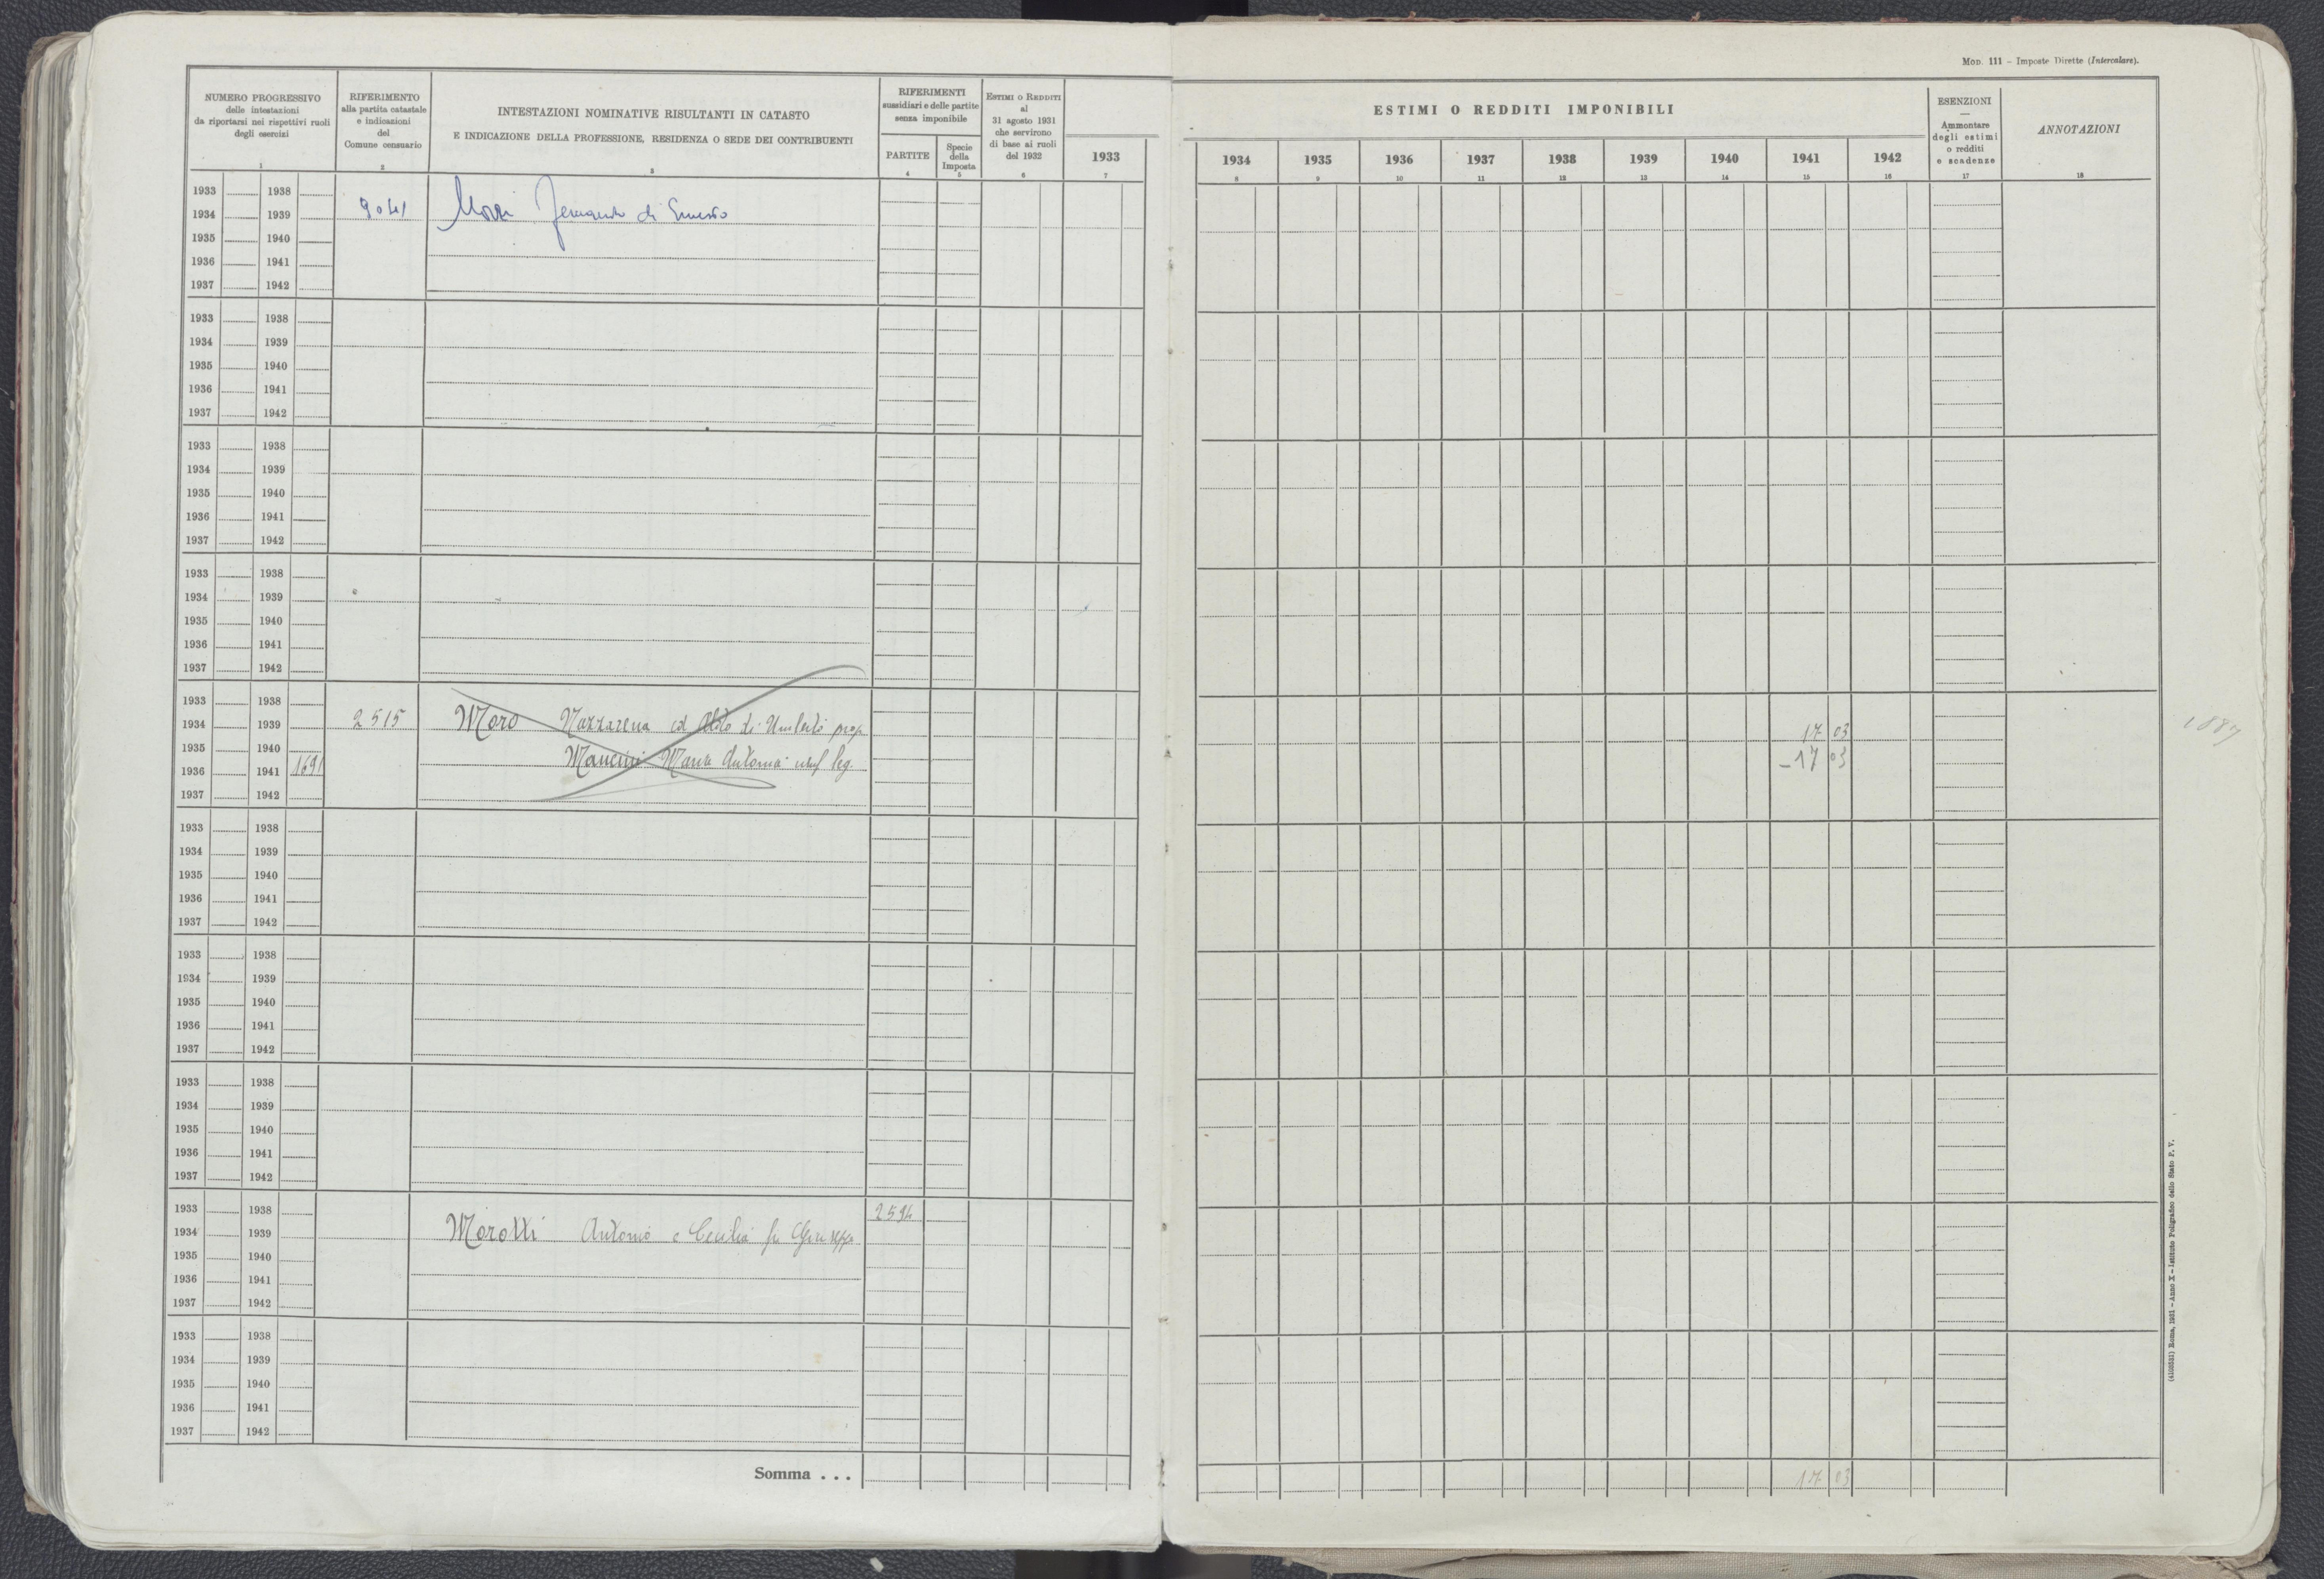 MOD. 111 – Imposte Dirette (Intercalare).
NUMERO PROGRESSIVO
delle intestazioni
da riportarsi nei rispettivi ruoli
degli esercizi
1
RIFERIMENTO
alla partita catastale
e indicazioni
del
Comune censuario
2
INTESTAZIONI NOMINATIVE RISULTANTI IN CATASTO
E INDICAZIONE DELLA PROFESSIONE, RESIDENZA O SEDE DEI CONTRIBUENTI
3
RIFERIMENTI
sussidiari e delle partite
senza imponibile
PARTITE
4
Specie
della
Imposta
5
ESTIMI O REDDITI
al
31 agosto 1931
che servirono
di base ai ruoli
del 1932
6
1933
7
ESTIMI O REDDITI IMPONIBILI
1934 1935 1936 1937 1938 1939 1940 1941 1942
8 9 10 11 12 13 14 15 16
ESENZIONI
—
Ammontare
degli estimi
o redditi
e scadenze
17
ANNOTAZIONI
18
1933 1938
1934 1939 9041 di Ernesto
1935 1940
1936 1941
1937 1942
1933 1938
1934 1939
1935 1940
1936 1941
1937 1942
1933 1938
1934 1939
1935 1940
1936 1941
1937 1942
1933 1938
1934 1939
1935 1940
1936 1941
1937 1942
1933 1938
1934 1939 2515 Moro Nazzarena ed Aldo di Umberto prop. 17 03
1935 1940 Mancini Maria Antonia usuf. leg. -17 03
1936 1941 1691
1937 1942
1887
1933 1938
1934 1939
1935 1940
1936 1941
1937 1942
1933 1938
1934 1939
1935 1940
1936 1941
1937 1942
1933 1938
1934 1939
1935 1940
1936 1941
1937 1942
1933 1938 2594
1934 1939 Morotti Antonio e Cecilia fu Giuseppe
1935 1940
1936 1941
1937 1942
1933 1938
1934 1939
1935 1940
1936 1941
1937 1942
Somma . . . 17 03
(4103521) Roma, 1931 – Anno X – Istituto Poligrafico dello Stato P. V.